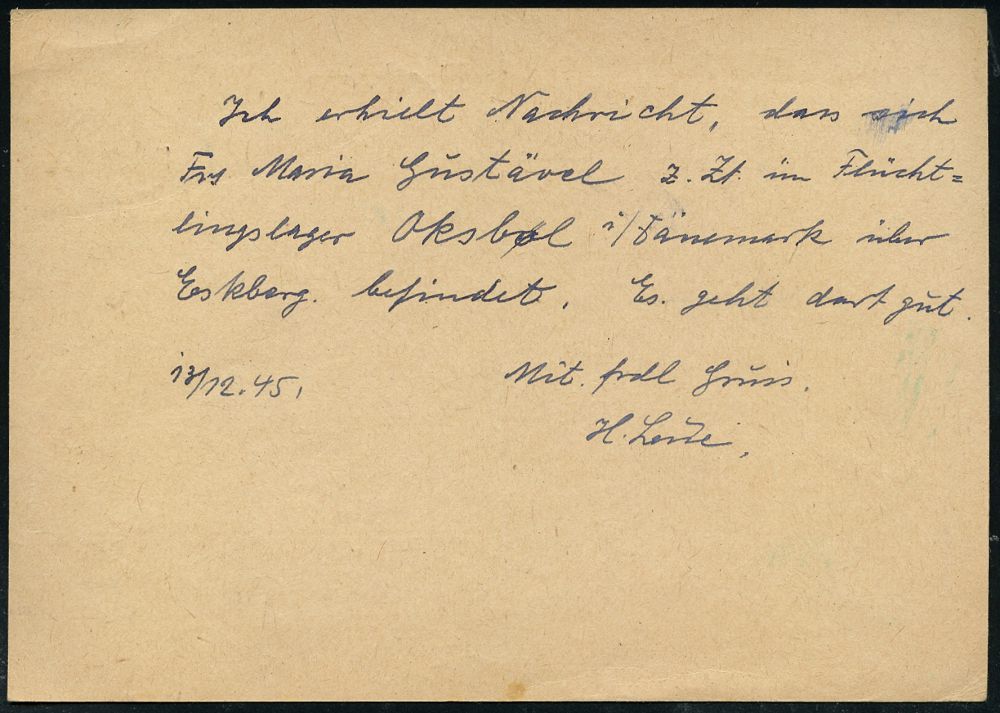 Ich erhielt Nachricht, dass sich
Frl Maria Gustävel z. Zt. im Flücht=
lingslager Oksbøl i/Dänemark über
Eskberg. befindet. Es. geht dort gut.
13/12.45.
Mit. frdl Gruss.
H.